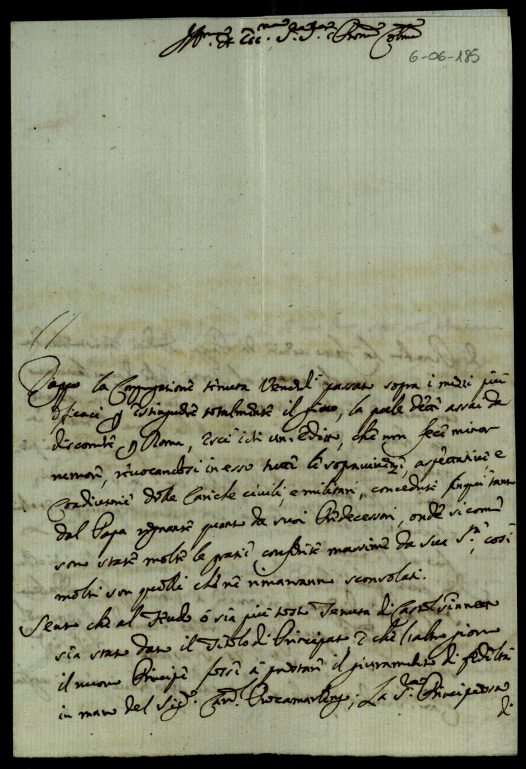 Ill.mo et Ecc.mo S.r S.r P.rone Col.mo
6-06-185
Doppo la Congregatione tenuta Venerdì passato sopra i mezzi più
efficaci p estinguere totalmente il fuoco, la quale dette assai da
discorrere p Roma, uscì ieri un Editto, che non fece minor
rumore, revocandosi in esso tutte le sopravivenze, aspettative, e
Coadiutorie delle Cariche civili, e militari, concedute fin qui tanto
dal Papa regnante quanto da suoi Predecessori, onde si come
son state molte le gratie conferite massime da Sua S.tà, così
molti son quelli che ne rimarranno sconsolati.
Sento che al Feudo ò sia più tosto Tenuta di Castel
sia stato dato il Titolo di Principato e che l'altro giorno
il nuovo Principe fosse à prestare il giuramento di fedeltà
in mano del Sig.r Card. ; La S.ra Principessa
di